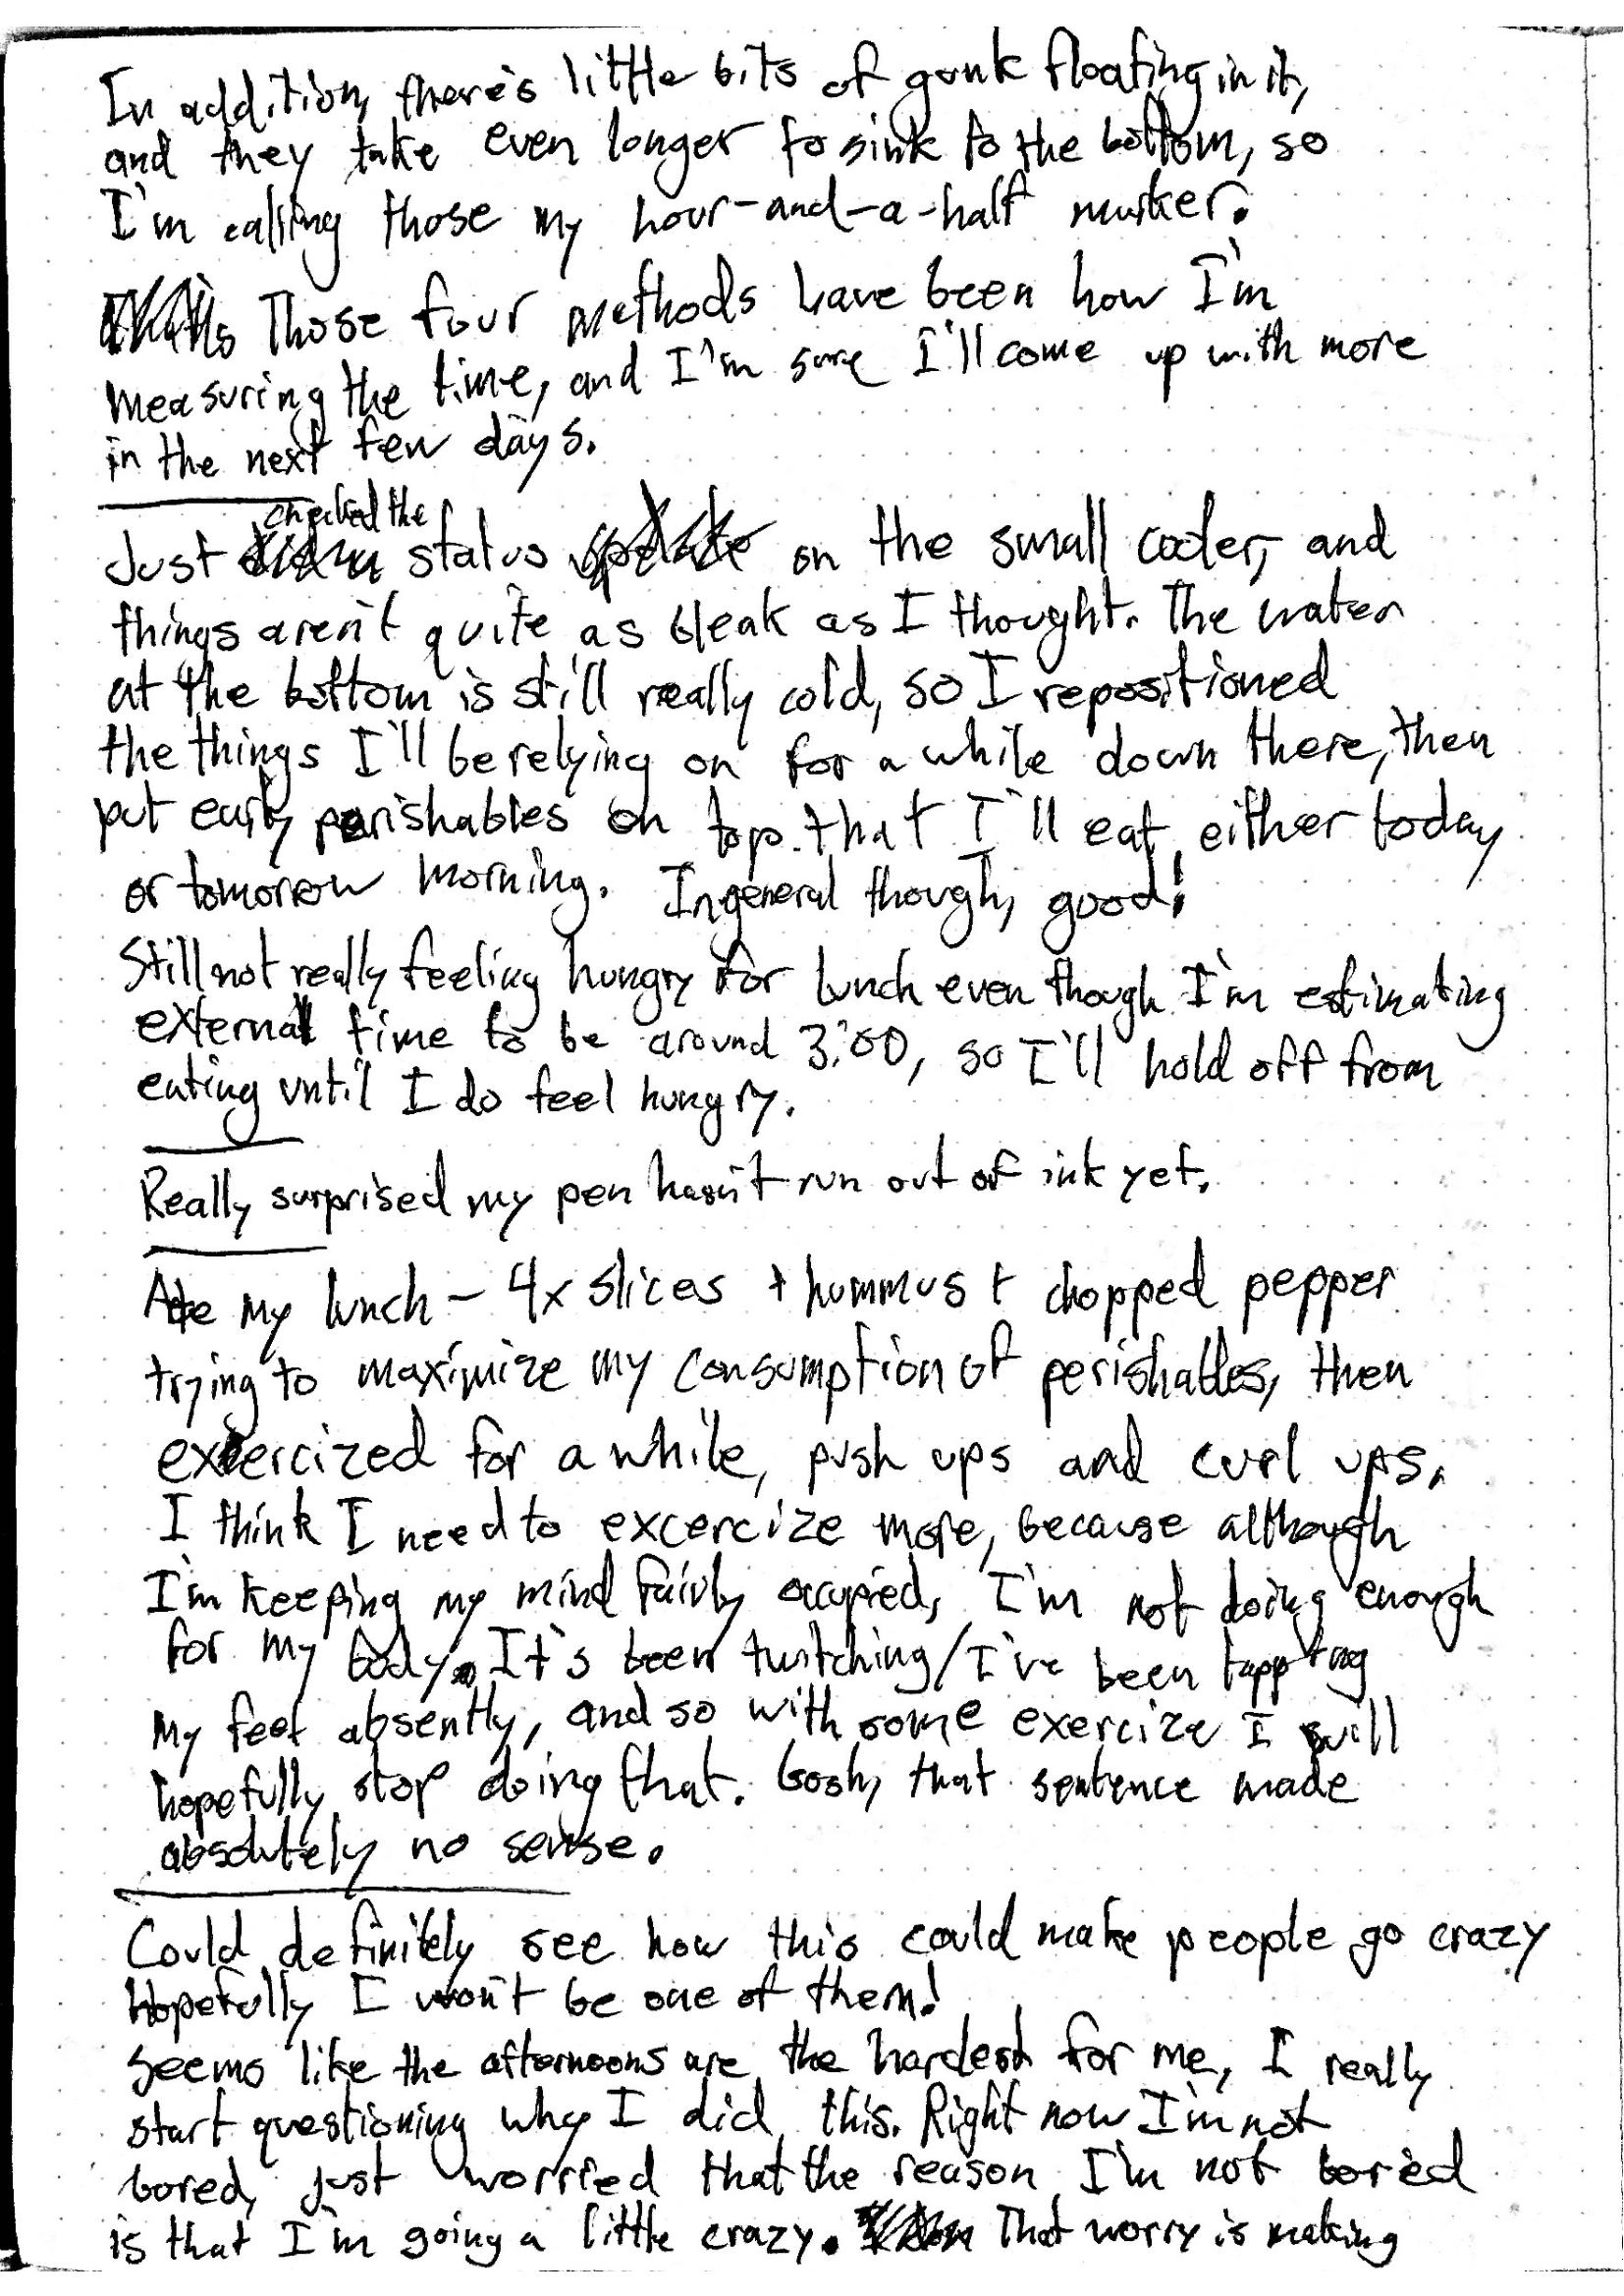 In addition, there's little bits of gunk floating in it,
and they take even longer to sink to the bottom, so
I'm calling those my hour-and-a-half marker.
Those four methods have been how I'm
measuring the time, and I'm sure I'll come up with more
in the next few days.
checked the
Just status on the small cooler, and
things aren't quite as bleak as I thought. The water
at the bottom is still really cold, so I repositioned
the things I'll be relying on for a while down there, then
put early perishables on top that I'll eat either today
or tomorrow morning. In general though, good!
Still not really feeling hungry for lunch even though I'm estimating
external time to be around 3:00, so I'll hold off from
eating until I do feel hungry.
Really surprised my pen hasn't run out of ink yet.
Ate my lunch - 4x slices + hummus + chopped pepper
trying to maximize my consumption of perishables, then
exercized for a while, push ups and curl ups.
I think I need to excercize more, because although
I'm keeping my mind fairly occupied, I'm not doing enough
for my body. It's been twitching/I've been tapping
my feet absently, and so with some exercize I will
hopefully stop doing that. Gosh, that sentence made
absolutely no sense.
Could definitely see how this could make people go crazy
Hopefully I won't be one of them!
Seems like the afternoons are the hardest for me, I really
start questioning why I did this. Right now I'm not
bored, just worried that the reason I'm not bored
is that I'm going a little crazy. That worry is making